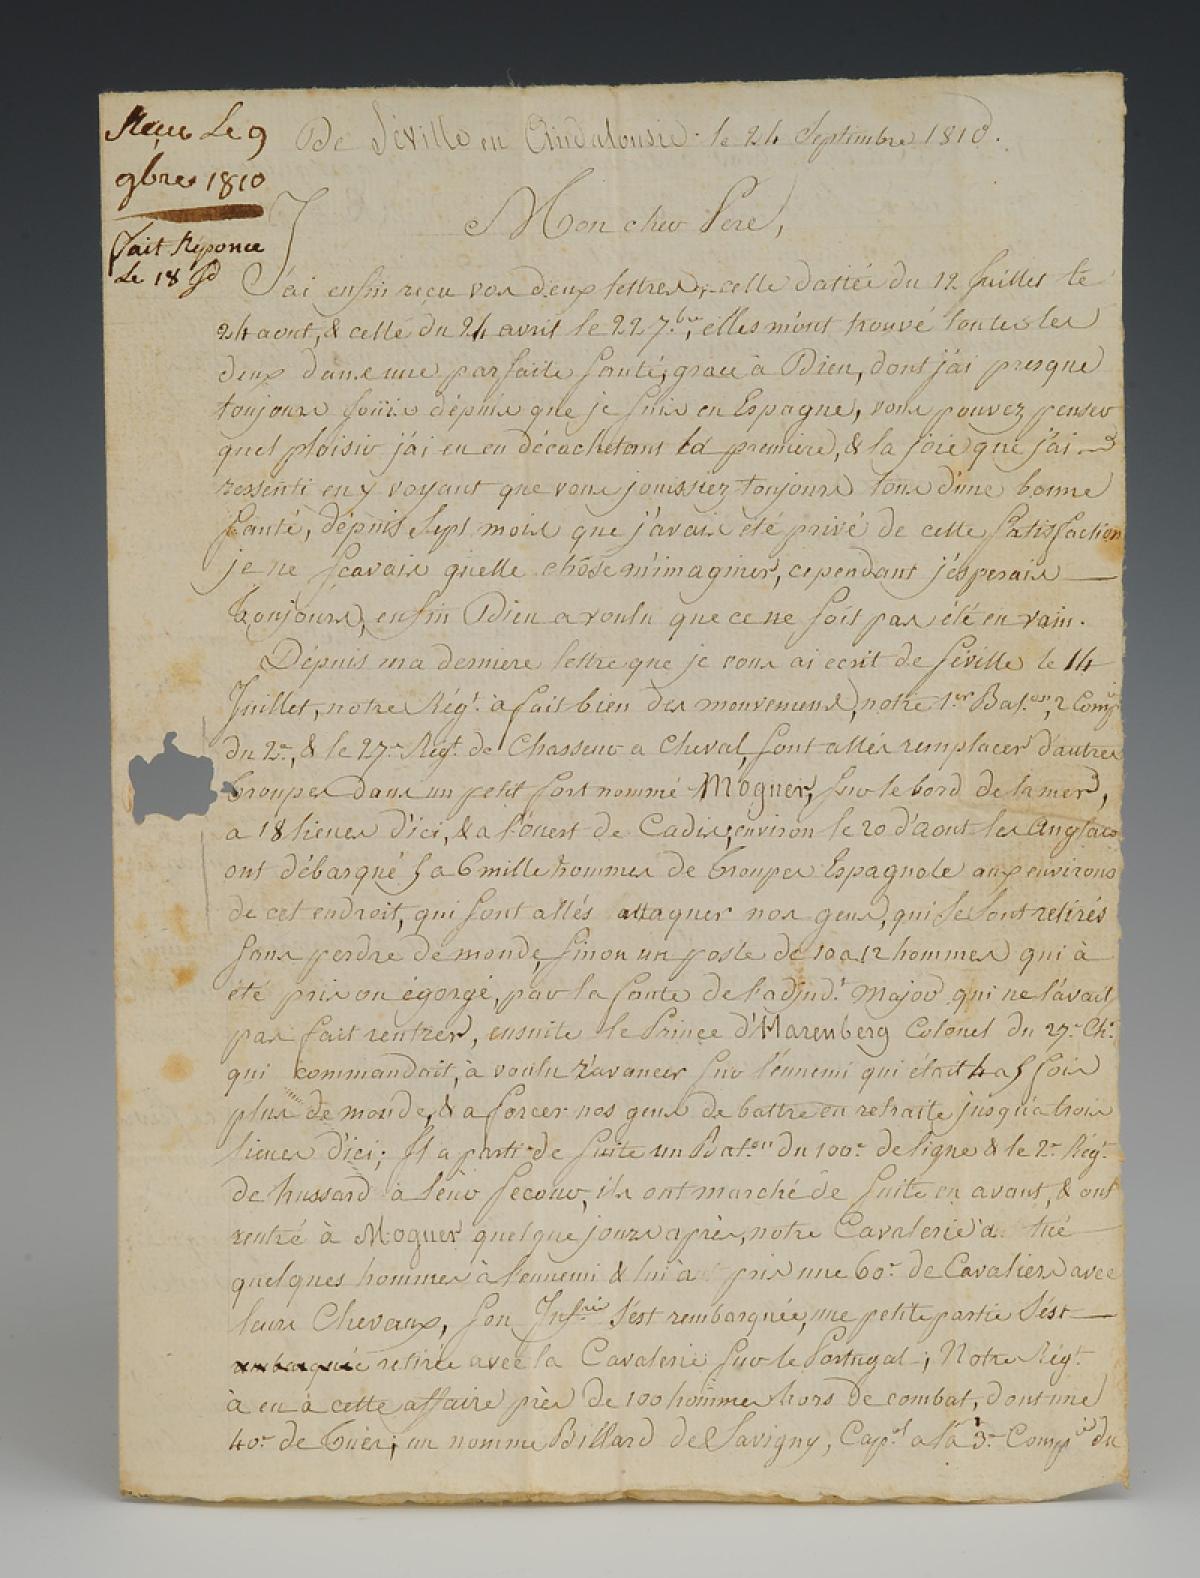 Reçue Le 9
9bres 1810
fait Réponce
Le 18 do
De Séville en Andalousie le 24 Septembre 1810.
Mon cher Pere,
J'ai enfin reçu vos deux lettres, celle dattée du 12 Juillet le
24 aout, & celle du 24 avril le 22 7.bre, elles m'ont trouvé toutes les
deux dans une parfaite Santé, grace à Dieu, dont j'ai presque
toujours joüis dépuis que je suis en Espagne, vous pouvez penser
quel plaisir j'ai eu en décachetant la première, & la joie que j'ai
ressenti en y voyant que vous jouissiez toujours tous d'une bonne
Santé, dépuis Sept mois que j'avais été privé de cette Satisfaction
je ne Scavais quelle chôse m'imaginer, cependant j'ésperais
toujours, enfin Dieu a voulu que ce ne soit pas été en vain.
Dépuis ma derniere lettre que je vous ai ecrit de Séville le 14
Juillet, notre Régt. à fait bien des mouvemens, notre 1.er Bat.on, 2 Comp.
du 2.e, & le 27.e Régt. de Chasseur a Cheval, sont allés remplacer d'autres
troupes dans un petit fort nommé Moguer, sur le bord de la mer,
a 18 lieues d'ici, & a l'ouest de Cadix, environ le 20 d'aout les Anglais
ont débarqué 5 a 6 mille hommes de troupes Espagnole aux environs
de cet endroit, qui sont allés attaquer nos gens, qui se sont retirés
sans perdre de monde, sinon un poste de 10 a 12 hommes qui à
été pris ou égorgé, par la faute de l'adjud.t Major qui ne l'avait
pas fait rentrer, ensuite le Prince d'Haremberg Colonel du 27.e Ch.
qui commandait, à voulu s'avancer sur l'énnemi qui était 4 a 5 fois
plus de monde, & a forcer nos gens de battre en retraite jusqu'a trois
lieues d'ici; Il a parti de suite un Bat.on du 100.e de ligne & le 2.e Régt.
de hussard à leur secour, ils ont marché de suite en avant, & ont
rentré à Moguer quelque jours après, notre Cavalerie a tué
quelques hommes à l'ennemi & lui à pris une 60.e de Cavaliers avec
leurs Chevaux, son Inf.rie s'est rembarquée, une petite partie s'ést
embarquée retirée avec la Cavalerie sur le Portugal; Notre Régt.
à eu à cette affaire près de 100 hommes hors de combat, dont une
40.e de tués; un nomme Billard de Savigny, Cap.al a la 3.e Comp.ie du